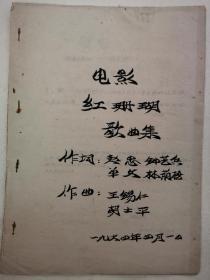 电影
红珊瑚
歌曲集
作词:赵忠 钟艺兵
单文 林荫梧
作曲:王锡仁
胡士平
一九六四年四月一日